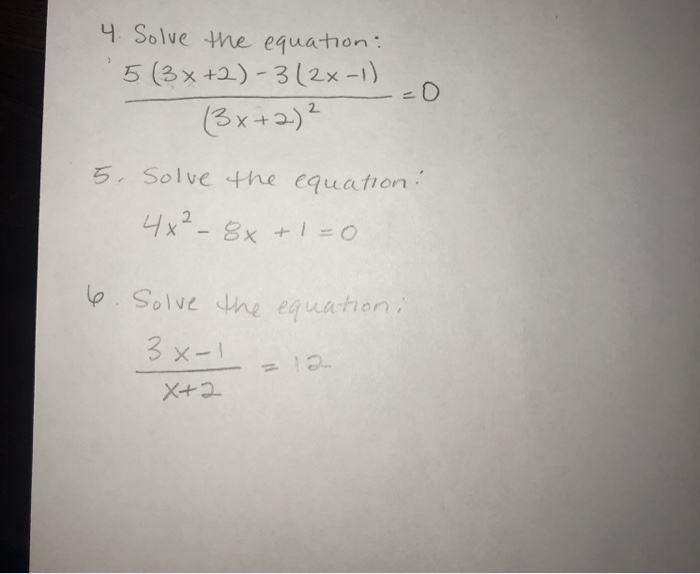 4. Solve the equation:
5(3x+2)-3(2x-1)
(3x+2)² =0
5. Solve the equation:
4x²-8x+1=0
6. Solve the equation:
3x-1
x+2 = 12